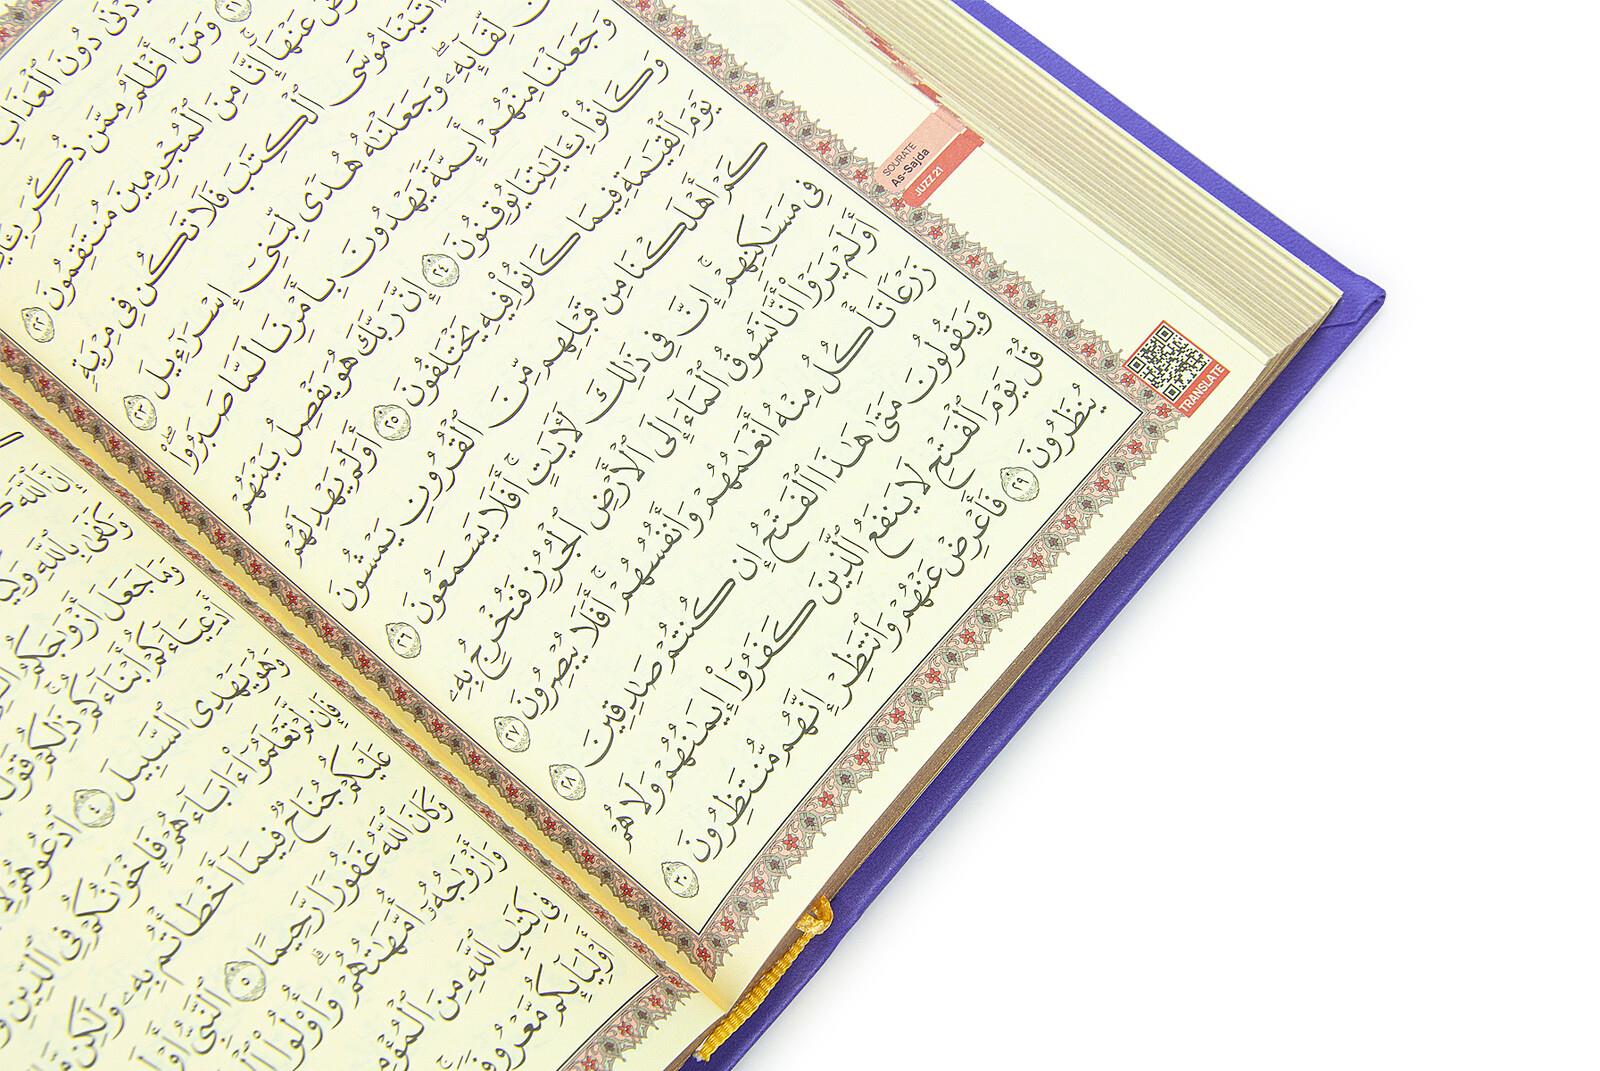 دُونَ ٱلْعَذَابِ
٢١ وَمَنْ أَظْلَمُ مِمَّن ذُكِّرَ
عَنْهَآ إِنَّا مِنَ ٱلْمُجْرِمِينَ مُنتَقِمُونَ ٢٢
ءَاتَيْنَا مُوسَى ٱلْكِتَٰبَ فَلَا تَكُن فِى مِرْيَةٍ
لِّقَآئِهِۦ ۖ وَجَعَلْنَٰهُ هُدًى لِّبَنِىٓ إِسْرَٰٓءِيلَ ٢٣
وَجَعَلْنَا مِنْهُمْ أَئِمَّةً يَهْدُونَ بِأَمْرِنَا لَمَّا صَبَرُوا۟ ۖ
وَكَانُوا۟ بِـَٔايَٰتِنَا يُوقِنُونَ ٢٤ إِنَّ رَبَّكَ هُوَ يَفْصِلُ بَيْنَهُمْ
يَوْمَ ٱلْقِيَٰمَةِ فِيمَا كَانُوا۟ فِيهِ يَخْتَلِفُونَ ٢٥ أَوَلَمْ يَهْدِ لَهُمْ
كَمْ أَهْلَكْنَا مِن قَبْلِهِم مِّنَ ٱلْقُرُونِ يَمْشُونَ
فِى مَسَٰكِنِهِمْ ۚ إِنَّ فِى ذَٰلِكَ لَءَايَٰتٍ ۖ أَفَلَا يَسْمَعُونَ ٢٦
أَوَلَمْ يَرَوْا۟ أَنَّا نَسُوقُ ٱلْمَآءَ إِلَى ٱلْأَرْضِ ٱلْجُرُزِ فَنُخْرِجُ بِهِۦ
زَرْعًا تَأْكُلُ مِنْهُ أَنْعَٰمُهُمْ وَأَنفُسُهُمْ ۖ أَفَلَا يُبْصِرُونَ ٢٧
وَيَقُولُونَ مَتَىٰ هَٰذَا ٱلْفَتْحُ إِن كُنتُمْ صَٰدِقِينَ ٢٨
قُلْ يَوْمَ ٱلْفَتْحِ لَا يَنفَعُ ٱلَّذِينَ كَفَرُوٓا۟ إِيمَٰنُهُمْ وَلَا هُمْ
يُنظَرُونَ ٢٩ فَأَعْرِضْ عَنْهُمْ وَٱنتَظِرْ إِنَّهُم مُّنتَظِرُونَ ٣٠
SOURATE
As-Sajda
JUZZ 21
TRANSLATE
إِنَّ ٱللَّهَ
وَكَفَىٰ بِٱللَّهِ
وَمَا جَعَلَ أَزْوَٰجَكُمُ
أَدْعِيَآءَكُمْ أَبْنَآءَكُمْ ۚ ذَٰلِكُمْ
وَهُوَ يَهْدِى ٱلسَّبِيلَ ٤ ٱدْعُوهُمْ
فَإِن لَّمْ تَعْلَمُوٓا۟ ءَابَآءَهُمْ فَإِخْوَٰنُكُمْ فِى ٱلدِّينِ
عَلَيْكُمْ جُنَاحٌ فِيمَآ أَخْطَأْتُم بِهِۦ وَلَٰكِن
وَكَانَ ٱللَّهُ غَفُورًا رَّحِيمًا ٥ ٱلنَّبِىُّ أَوْلَىٰ
وَأَزْوَٰجُهُۥٓ أُمَّهَٰتُهُمْ ۗ وَأُو۟لُوا۟
فِى كِتَٰبِ ٱللَّهِ مِنَ ٱلْمُؤْمِ
أَوْلِيَآئِكُم مَّعْرُوفًا ۚ